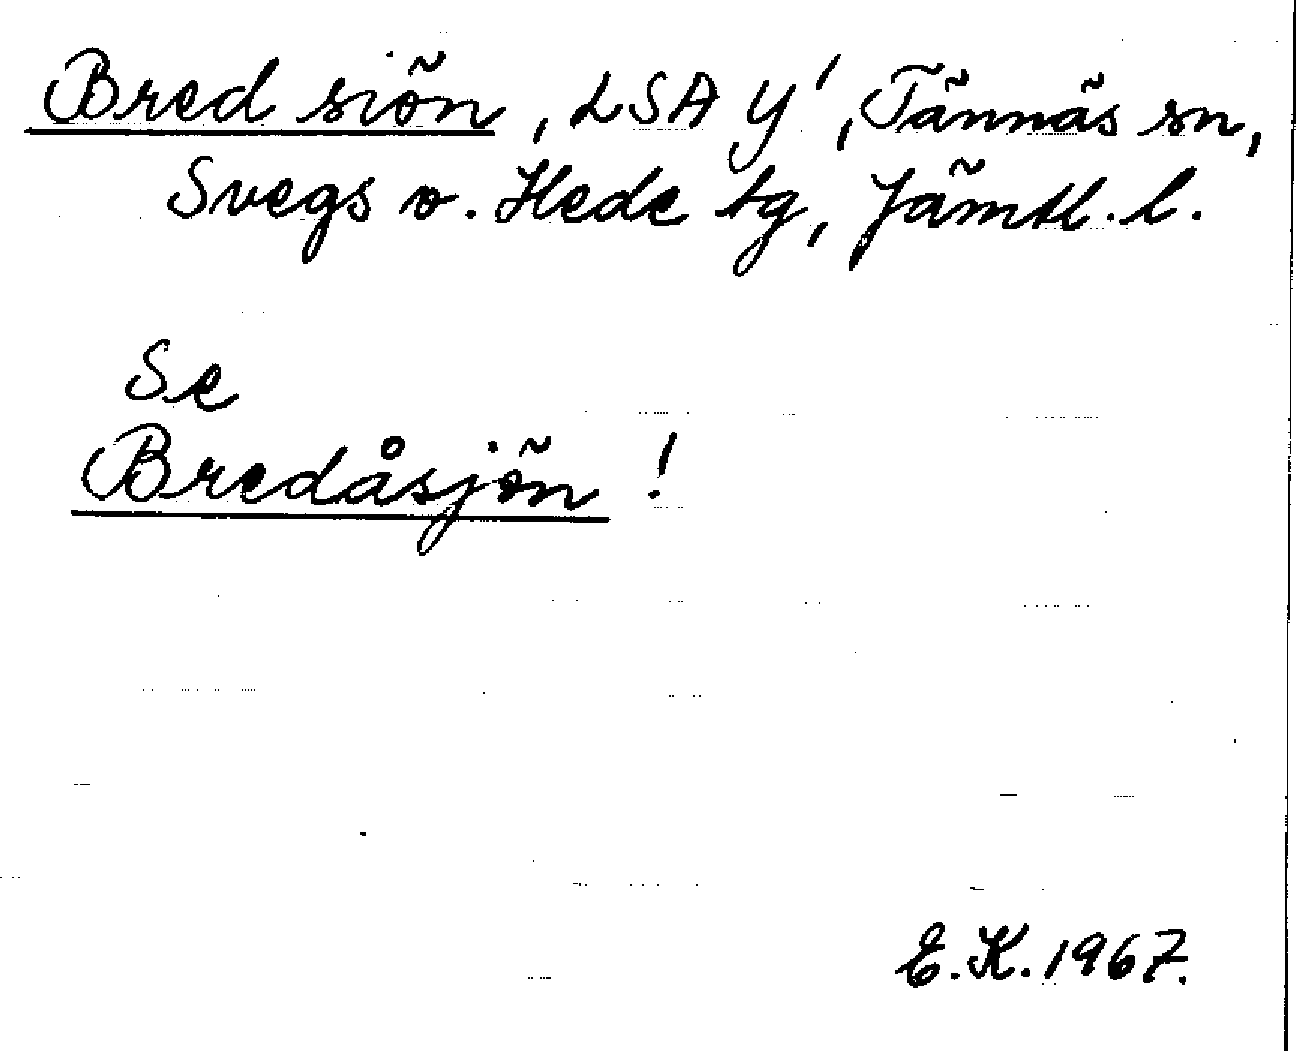 Bred siön, LSA Y', Tännäs sn,
Svegs o. Hede tg, Jämtl. l.
Se
Bredåsjön !
E.K. 1967.